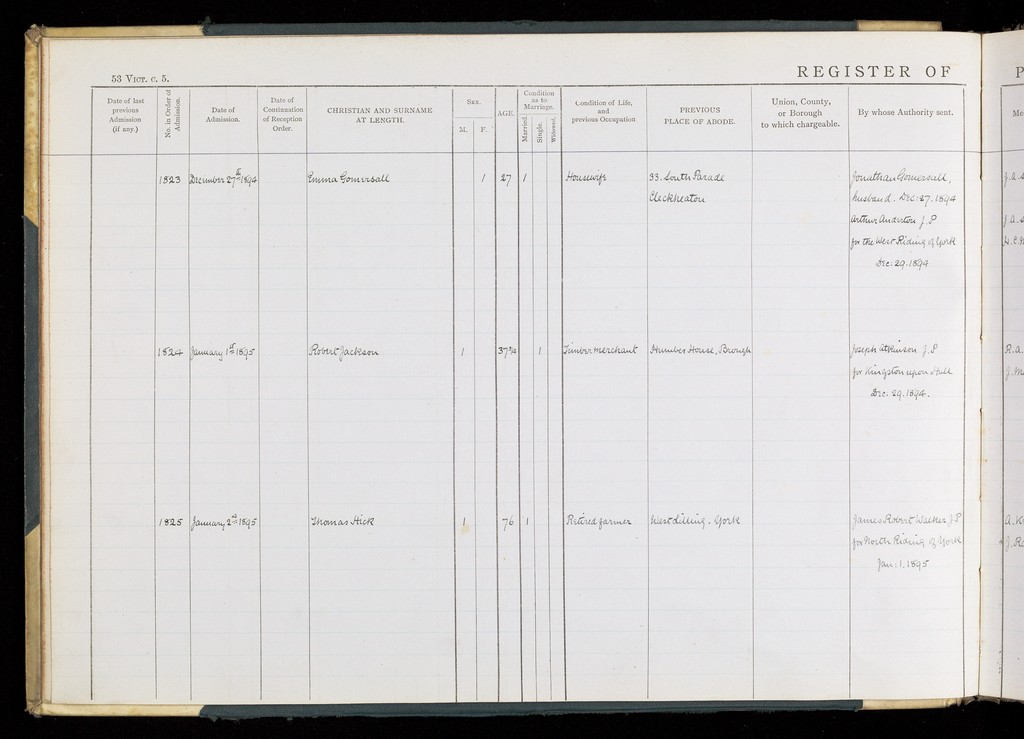 53 Vict. c. 5.
REGISTER OF
Date of last previous Admission (if any.)
No. in Order of Admission.
Date of Admission.
Date of Continuation of Reception Order.
CHRISTIAN AND SURNAME AT LENGTH.
Sex.
M. F.
AGE.
Condition as to Marriage.
Married. Single. Widowed.
Condition of Life, and previous Occupation
PREVIOUS PLACE OF ABODE.
Union, County, or Borough to which chargeable.
By whose Authority sent.
1823 December 27th 1894 Emma Gomersall 1 27 1 Housewife 33. South Parade Jonathan Gomersall,
Cleckheaton husband. Dec: 27. 1894
Arthur Anderton J.P
for the West Riding of York
Dec: 29. 1894
1824 January 1st 1895 Robert Jackson 1 37 1 Timber merchant Humber House, Brough Joseph Atkinson J.P
for Kingston upon Hull
Dec: 29. 1894.
1825 January 2nd 1895 Thomas Hick 1 76 1 Retired farmer West Lilling. York James Robert Walker J.P
for North Riding of York
Jan: 1. 1895